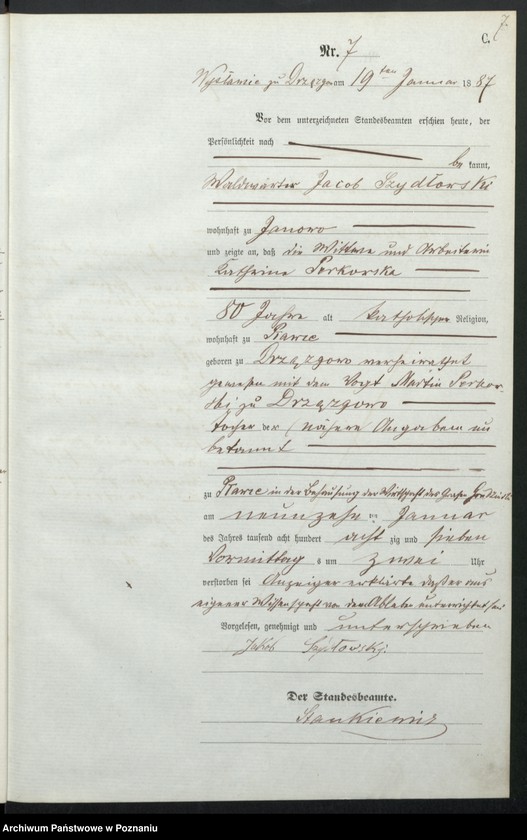 7.
C.
Nr. 7
Wysławie zu Drzązgowo am 19ten Januar 1887
Vor dem unterzeichneten Standesbeamten erschien heute, der
Persönlichkeit nach
be kannt,
Waldwärter Jacob Szydłowski
wohnhaft zu Janowo
und zeigte an, daß die Wittwe und Arbeiterin
Katharina Perkowska
80 Jahre alt katholischer Religion,
wohnhaft zu
geboren zu Drzązgowo verheirathet
gewesen mit dem Vogt Martin Perkow-
ski zu Drzązgowo
Tochter der (nähere Angaben un
bekannt
zu in der Behausung der Wirthschaft des Grafen
am neunzehn ten Januar
des Jahres tausend acht hundert acht zig und sieben
Vormittag s um zwei Uhr
verstorben sei Anzeiger erklärte daß er aus
eigener Wissenschaft von dem Ableben unterrichtet sei
Vorgelesen, genehmigt und unterschrieben
Jakob
Der Standesbeamte.
Stankiewicz
Archiwum Państwowe w Poznaniu